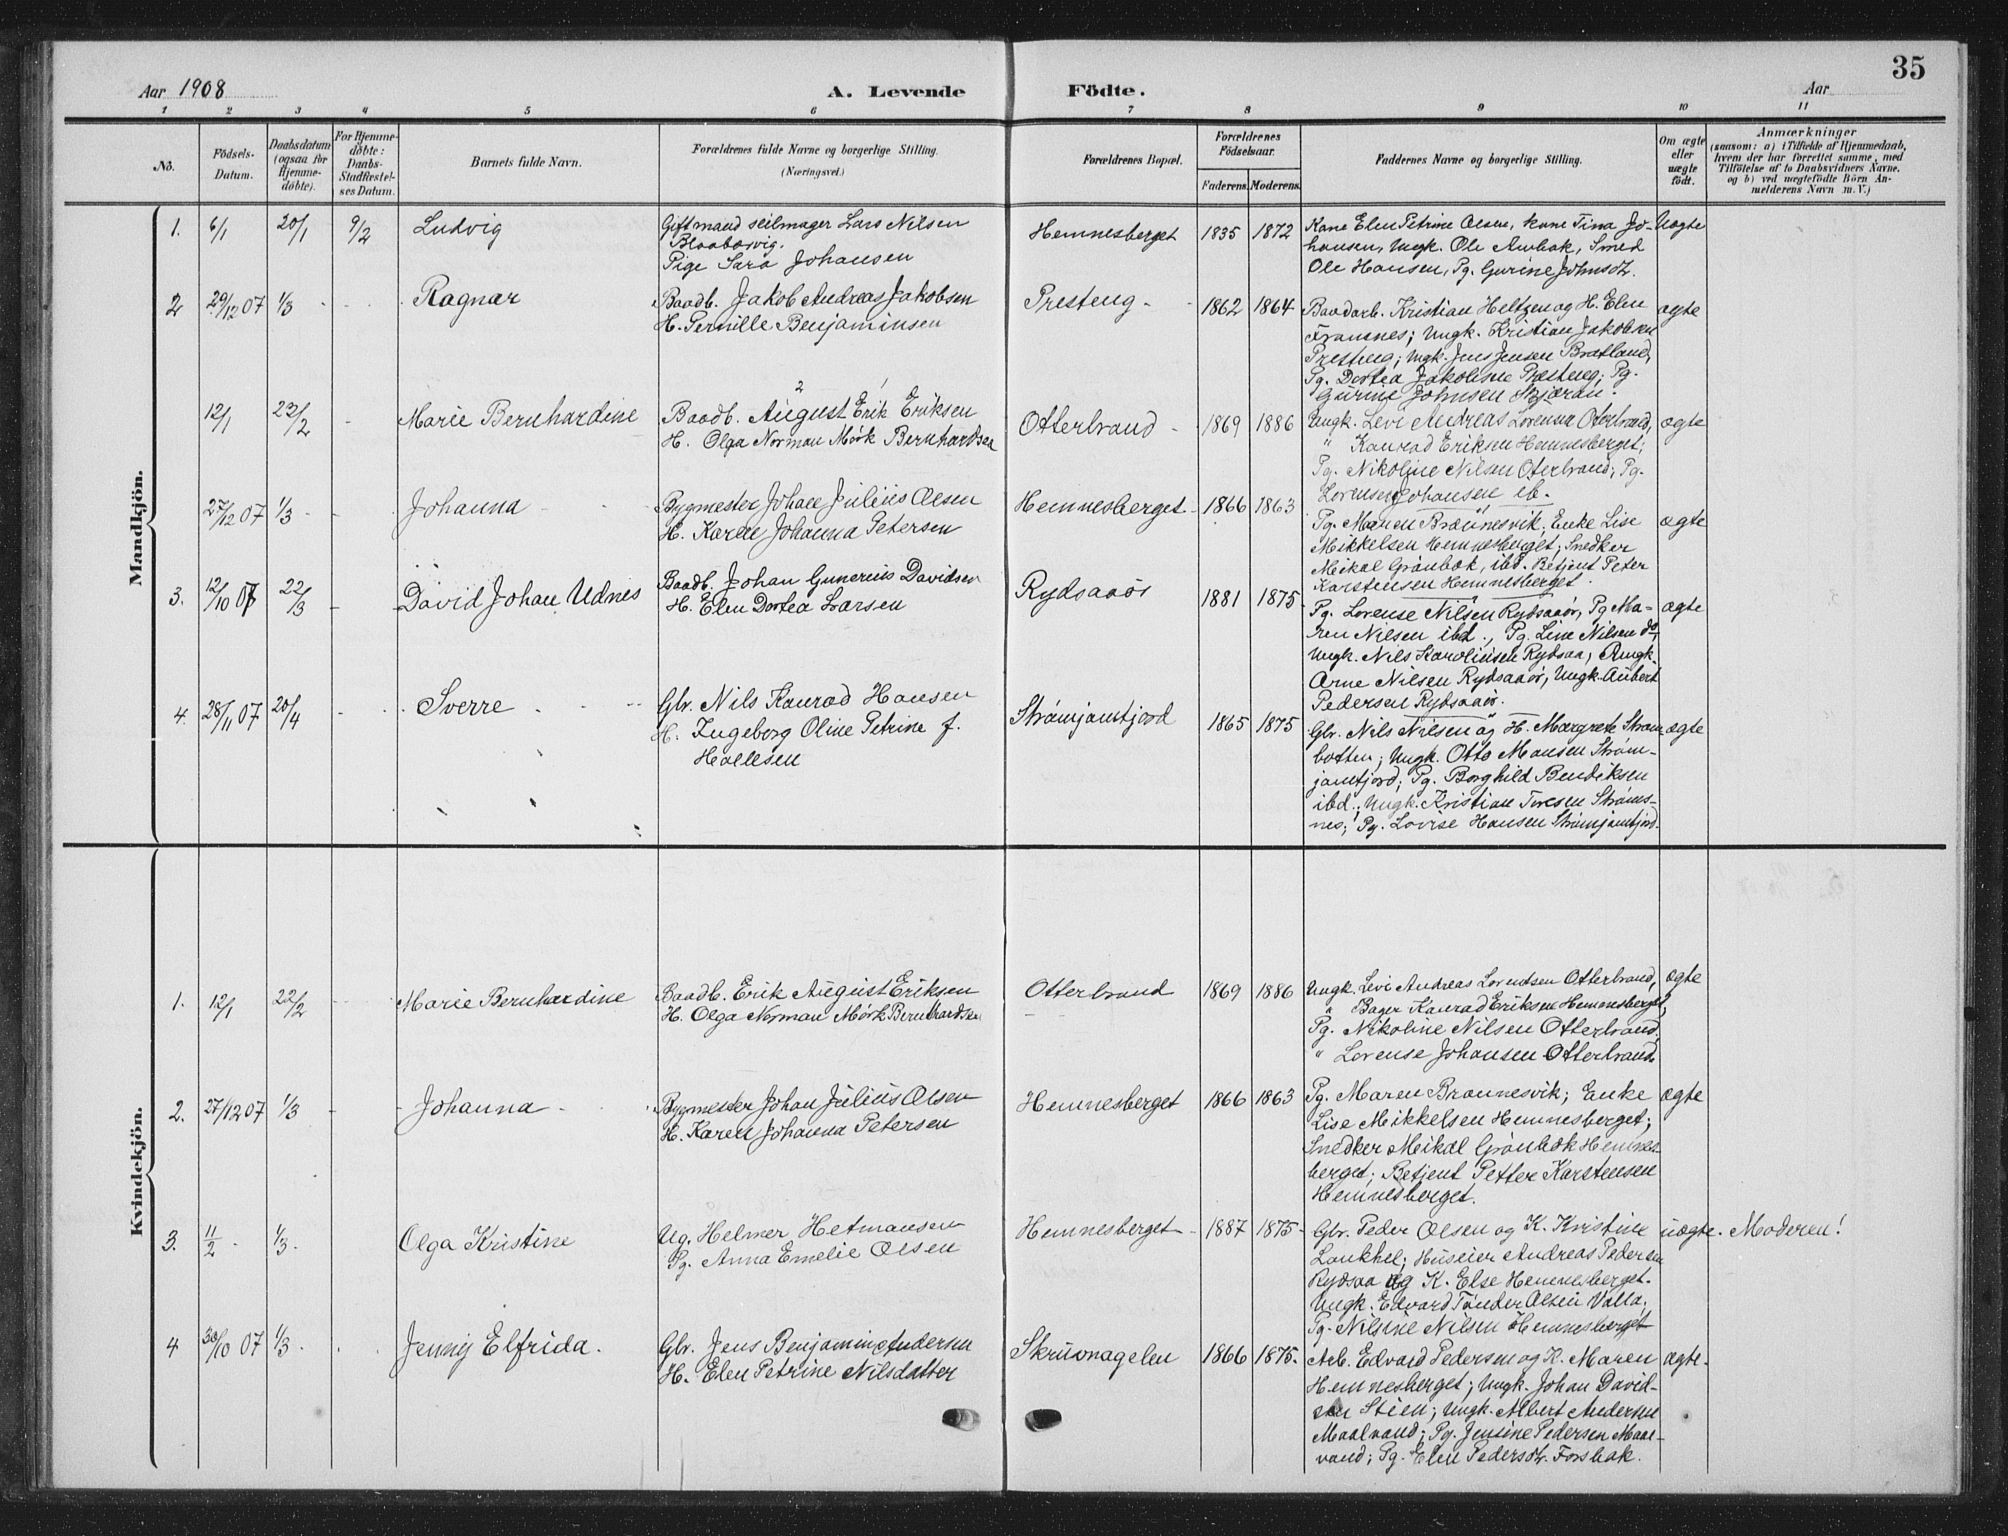 35
Aar 1908
A. Levende Födte.
Aar
1 2 3 4 5 6 7 8 9 10 11
No.
Födsels-Datum.
Daabsdatum (ogsaa for Hjemme-döbte).
For Hjemme-döbte: Daabs-Stadfæstel-ses Datum.
Barnets fulde Navn.
Forældrenes fulde Navne og borgerlige Stilling. (Næringsvei.)
Forældrenes Bopæl.
Forældrenes Födselsaar.
Faderens. Moderens.
Faddernes Navne og borgerlige Stilling.
Om ægte eller uægte födt.
Anmærkninger
(saasom: a) i Tilfælde af Hjemmedaab,
hvem der har forrettet samme, med
Tilföielse af to Daabsvidners Navne.
og b) ved uægtefödte Börn An-
melderens Navn m. V.)
Mandkjön.
1. 6/1 20/1 9/2 Ludvig
Gift mand seilmager Lars Nilsen
Blaabærvig.
Pige Sara Johansen
Hemnesberget 1835 1872
Kone Elen Petrine Olsen, kone Tina Jo-
hansen, Ungk. Ole Aubak, Smed
Ole Hansen, Pg. Gurine Johnsdt.
Uægte
2 29/12 07 1/3 Ragnar
Baadb. Jakob Andreas Jakobsen
H. Pernille Benjaminsen
Presteng 1862 1864
Baadarb. Kristian Heltzen og H. Elen
Fransnes; Ungk. Kristian Jakobsen
Presteng; Ungk. Jens Jensen Bratland,
Pg. Dortea Jakobsen Presteng; Pg.
Gurine Johnsen Skjæran.
ægte
12/1 22/2 Marie Bernhardine
Baadb. August Erik Eriksen
H. Olga Norman Mørk Bernhardsen
Otterbrand 1869 1886
Ungk. Levi Andreas Lorensen Oterbrand,
" Konrad Eriksen Hemnesberget;
Pg. Nikoline Nilsen Oterbrand; Pg.
Lorense Johansen ib.
ægte
27/12 07 1/3 Johanna
Bygmester Johan Julius Olsen
H. Karen Johanna Petersen
Hemnesberget 1866 1863
Pg. Maren Braunesvik; Enke Lise
Mikkelsen Hemnesberget; Snedker
Mikal Grønbæk, ibd. Betjent Peter
Karstensen Hemnesberget.
ægte
3. 12/10 07 22/3 David Johan Udnes
Baadb. Johan Gunerius Davidsen
H. Elen Dortea Larsen
Rydsaaøs 1881 1875
Pg. Lorense Nilsen Rydsaaør, Pg Ma-
ren Nilsen ibd., Pg. Line Nilsen do,
Ungk. Nils Karolinsen Rydsaa; Ungk.
Arne Nilsen Rydsaaør, Ungk. Aubert
Pedersen Rydsaaør.
ægte
4. 28/11 07 20/4 Sverre
Gbr. Nils Konrad Hansen
H. Ingeborg Oline Petrine f.
Hallesen
Strømjamtjord 1865 1875
Gbr. Nils Nilsen og H. Margrete Strøm
botten; Ungk. Otto Monsen Strøm-
jamtjord; Pg. Borghild Bendiksen
ibd.; Ungk. Kristian Toresen Strøms-
nes; Pg. Lovise Hansen Strømjamtjord.
ægte
Kvindekjön.
1. 12/1 22/2 Marie Bernhardine
Baadb. Erik August Eriksen
H. Olga Norman Mørk Bernhardsen
Otterbrand 1869 1886
Ungk. Levi Andreas Lorentsen Otterbrand,
" Bager Konrad Eriksen Hemnesberget,
Pg. Nikoline Nilsen Otterbrand
" Lorense Johansen Otterbrand.
ægte
2. 27/12 07 1/3 Johanna
Bygmester Johan Julius Olsen
H. Karen Johanna Petersen
Hemnesberget 1866 1863
Pg. Maren Braunesvik; Enke
Lise Mikkelsen Hemnesberget;
Snedker Mikal Grønbæk Hemnes-
berget; Betjent Petter Karstensen
Hemnesberget.
ægte
3. 11/2 1/3 Olga Kristine
Ug. Helmer Hetmansen
Pg. Anna Emelie Olsen
Hemnesberget 1887 1875
Gbr. Peder Olsen og K. Kristine
Laukkel; Huseier Andreas Pedersen
Rydsaa og K. Else Hemnesberget.
Ungk. Edvard Tønder Olsen Valla;
Pg. Nilsine Nilsen Hemnesberget
uægte. Moderen!
4 30/10 07 1/3 Jenny Elfrida.
Gbr. Jens Benjamin Andersen
H. Elen Petrine Nilsdatter
Skrusnagelen 1866 1875
Arb. Edvard Pedersen og K. Maren
Hemnesberget; Ungk. Johan David-
sen Stien; Ungk. Albert Andersen
Maalvand; Pg. Jensine Pedersen Maal-
vand; Pg. Elen Pedersdt. Forsbak.
ægte